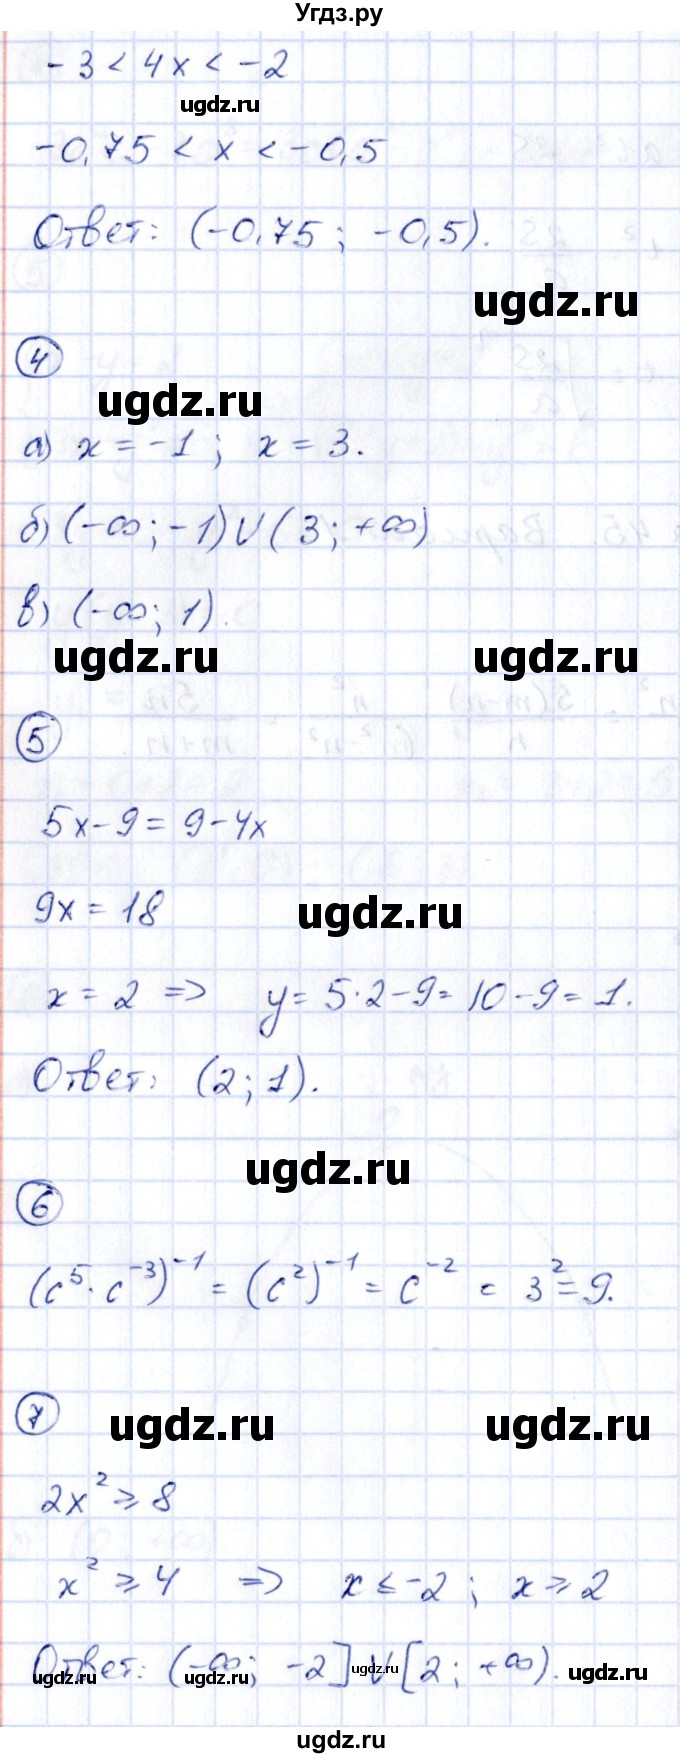 Угдз.ру
-3 < 4x < -2
ugdz.ru
-0,75 < x < -0,5
Ответ: (-0,75; -0,5).
ugdz.ru
4
ugdz.ru
а) x = -1; x = 3.
б) (-∞; -1) ∪ (3; +∞)
в) (-∞; 1).
ugdz.ru ugdz.ru
5
5x - 9 = 9 - 4x
9x = 18
ugdz.ru
x = 2 => y = 5·2 - 9 = 10 - 9 = 1.
Ответ: (2; 1).
ugdz.ru
6
(c⁵ · c⁻³)⁻¹ = (c²)⁻¹ = c⁻² = 3² = 9.
7
ugdz.ru ugdz.ru
2x² ⩾ 8
x² ⩾ 4 => x ≤ -2; x ⩾ 2
Ответ: (-∞; -2] ∪ [2; +∞).
ugdz.ru ugdz.ru ugdz.ru ugdz.ru
ugdz.ru